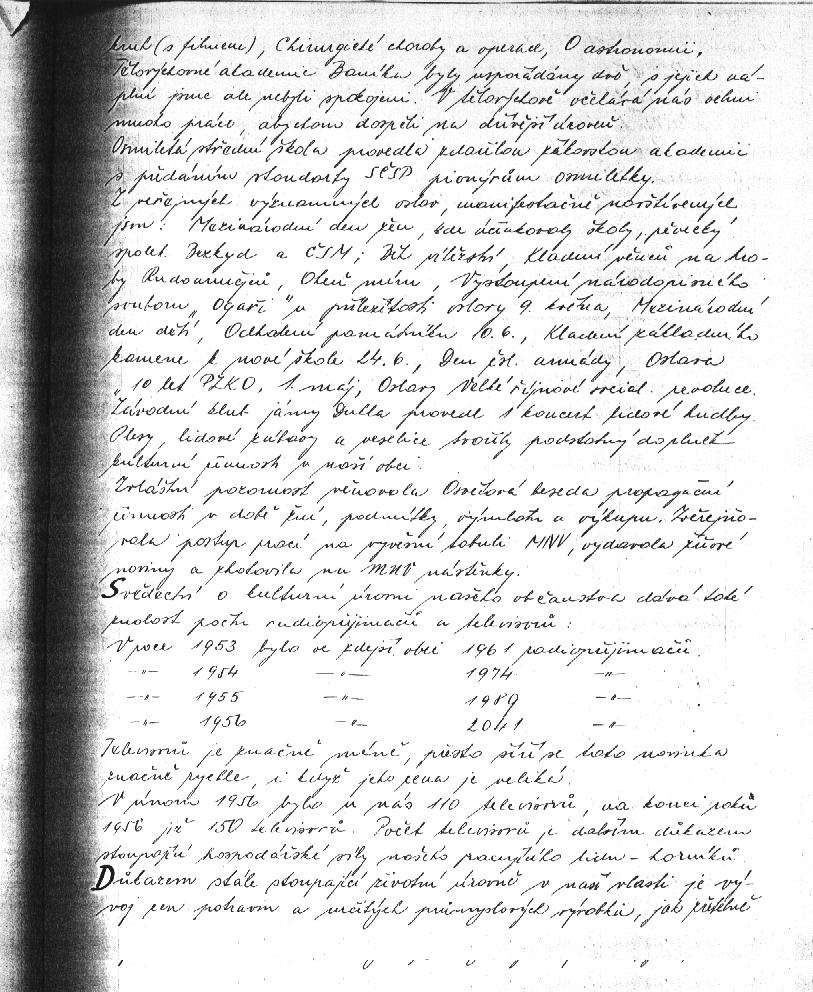 kruh (s filmem), Chirurgické choroby a operace, O astronomii,
Tělovýchovné akademie Baníka byly uspořádány dvě, s jejich ná-
plní jsme ale nebyli spokojeni. V tělovýchově očekává nás velmi
mnoho práce, abychom dospěli na dřívější úroveň.
Osmiletá střední škola provedla zdařilou žákovskou akademii
s předáním standarty SČSP pionýrům osmiletky.
Z veřejných významných oslav, manifestačně navštívených
jsou: Mezinárodní den žen, kde účinkovaly školy, pěvecký
spolek Bezkyd a ČSM; Běh vítězství, Kladení věnců na hro-
by Rudoarmějců, Oheň míru, Vystoupení národopisného
souboru „Ogaři" u příležitosti oslavy 9. května, Mezinárodní
den dětí, Odhalení památníku 10.6., Kladení základního
kamene k nové škole 24.6., Den čsl. armády, Oslava
„10 let PZKO, 1. máj, Oslavy Velké říjnové social. revoluce.
Závodní klub jámy Dukla provedl 1 koncert lidové hudby.
Plesy, lidové zábavy a veselice tvořily podstatný doplněk
kulturní činnosti v naší obci.
Zvláštní pozornost věnovala Osvětová beseda propagační
činnosti v době žní, podmítky, výmlatu a výkupu. Zveřejňo-
vala postup prací na vývěsní tabuli MNV, vydávala žňové
noviny a zhotovila na MNV nástěnky.
Svědectví o kulturní úrovni našeho občanstva dává také
znalost počtu radiopřijimačů a televisorů:
V roce 1953 bylo ve zdejší obci 1961 radiopřijimačů.
—"— 1954 —"— 1974 —"—
—"— 1955 1989 —"—
—"— 1956 —"— 2041 —"—
Televisorů je značně méně, přesto šíří se tato novinka
značně rychle, i když jeho cena je veliká.
V únoru 1956 bylo u nás 110 televisorů, na konci roku
1956 již 150 televisorů. Počet televisorů je dalším důkazem
stoupající hospodářské síly našeho pracujícího lidu – horníků.
Důkazem stále stoupající životní úrovně v naší vlasti je vý-
voj cen potravin a určitých průmyslových výrobků, jak zřetelně